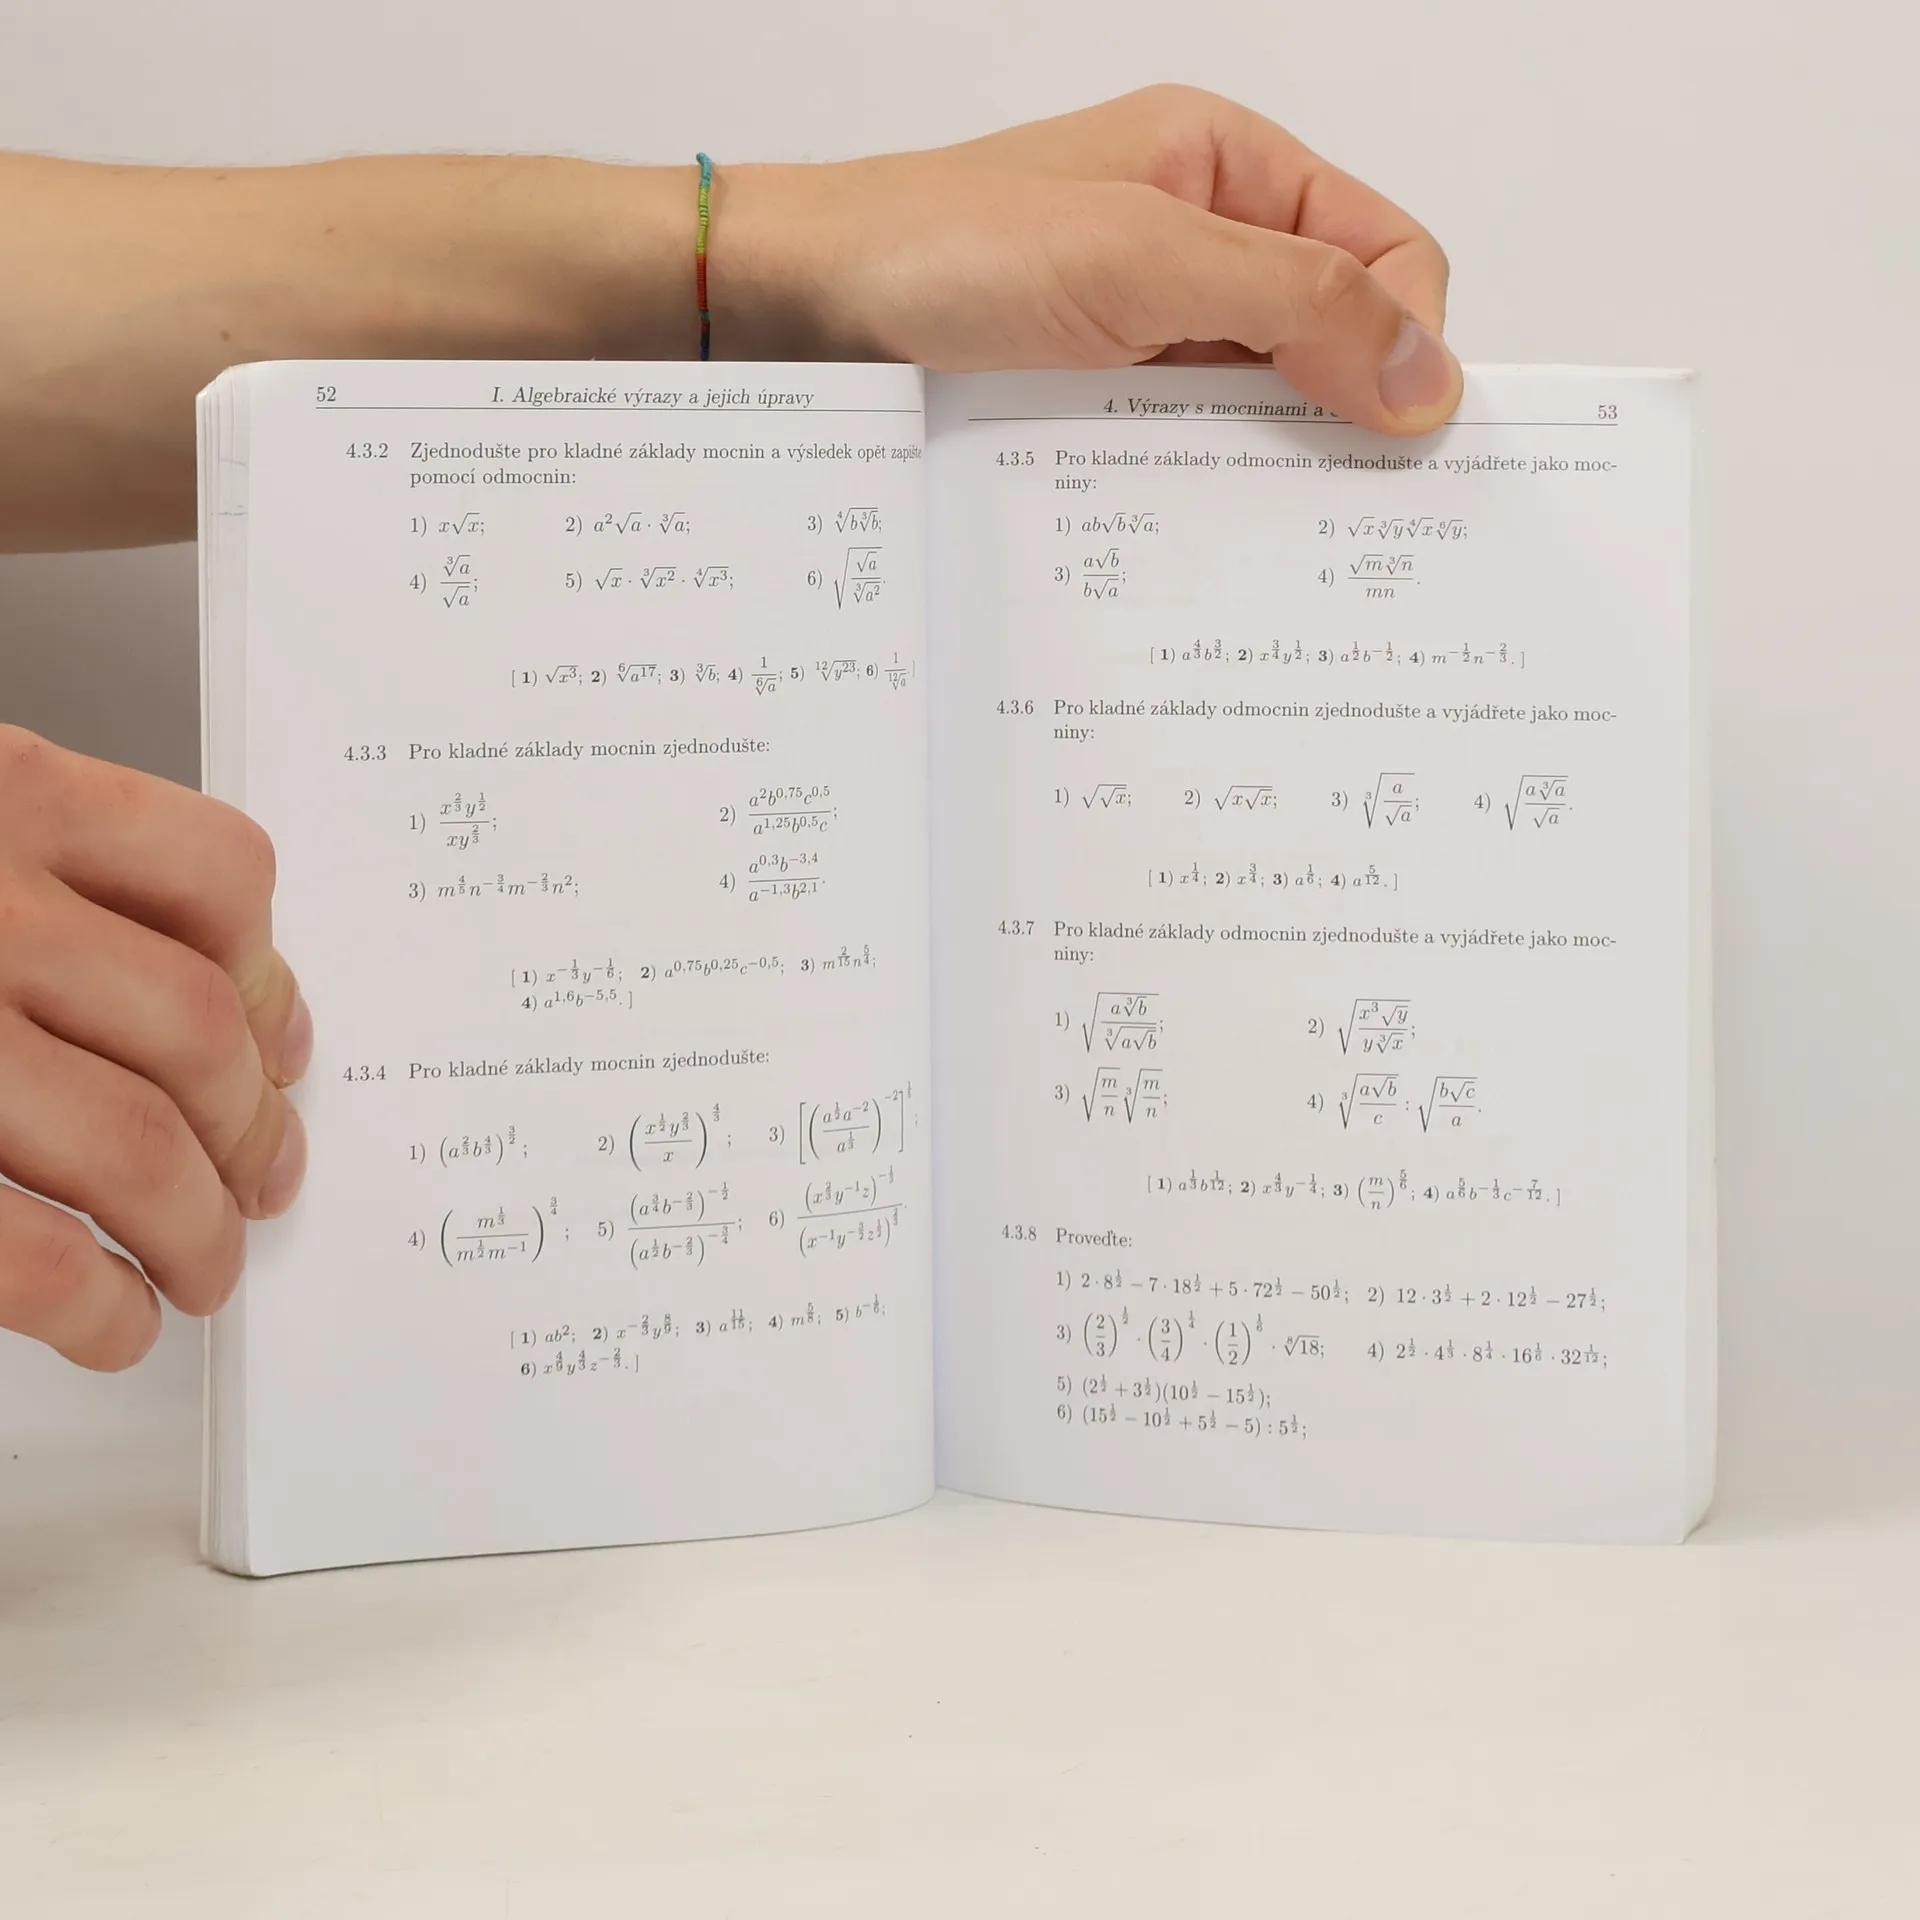 52 I. Algebraické výrazy a jejich úpravy
4.3.2 Zjednodušte pro kladné základy mocnin a výsledek opět zapište
pomocí odmocnin:
1) x√x; 2) a²√a · ∛a; 3) ∜(b∛b);
4) ∛a/√a; 5) √x · ∛(x²) · ∜(x³); 6) √(√a/∛(a²)).
[ 1) √(x³); 2) ⁶√(a¹⁷); 3) ∛b; 4) 1/⁶√a; 5) ¹²√(y²³); 6) 1/¹²√a. ]
4.3.3 Pro kladné základy mocnin zjednodušte:
1) x^(2/3)y^(1/2)/(xy^(2/3)); 2) a²b^(0,75)c^(0,5)/(a^(1,25)b^(0,5)c);
3) m^(4/5)n^(−3/4)m^(−2/3)n²; 4) a^(0,3)b^(−3,4)/(a^(−1,3)b^(2,1)).
[ 1) x^(−1/3)y^(−1/6); 2) a^(0,75)b^(0,25)c^(−0,5); 3) m^(2/15)n^(5/4);
4) a^(1,6)b^(−5,5). ]
4.3.4 Pro kladné základy mocnin zjednodušte:
1) (a^(2/3)b^(4/3))^(3/2); 2) (x^(1/2)y^(2/3)/x)^(4/3); 3) [(a^(1/2)a^(−2)/a^(1/3))^(−2)];
4) (m^(1/3)/(m^(1/2)m^(−1)))^(3/4); 5) (a^(3/4)b^(−2/3))^(−1/2)/(a^(1/2)b^(−2/3))^(−3/4); 6) (x^(2/3)y^(−1)z)^(−1/3)/(x^(−1)y^(−3/2)z^(1/2))^(2/3).
[ 1) ab²; 2) x^(−2/3)y^(8/9); 3) a^(11/15); 4) m^(5/8); 5) b^(−1/6);
6) x^(4/9)y^(4/3)z^(−2/3). ]
4. Výrazy s mocninami a 53
4.3.5 Pro kladné základy odmocnin zjednodušte a vyjádřete jako moc-
niny:
1) ab√b∛a; 2) √x∛y∜x⁶√y;
3) a√b/(b√a); 4) √m∛n/(mn).
[ 1) a^(4/3)b^(3/2); 2) x^(3/4)y^(1/2); 3) a^(1/2)b^(−1/2); 4) m^(−1/2)n^(−2/3). ]
4.3.6 Pro kladné základy odmocnin zjednodušte a vyjádřete jako moc-
niny:
1) √(√x); 2) √(x√x); 3) ∛(a/√a); 4) √(a∛a/√a).
[ 1) x^(1/4); 2) x^(3/4); 3) a^(1/6); 4) a^(5/12). ]
4.3.7 Pro kladné základy odmocnin zjednodušte a vyjádřete jako moc-
niny:
1) √(a∛b/∛(a√b)); 2) √(x³√y/(y∛x));
3) √(m/n)∛(m/n); 4) ∛(a√b/c) : √(b√c/a).
[ 1) a^(1/3)b^(1/12); 2) x^(4/3)y^(−1/4); 3) (m/n)^(5/6); 4) a^(5/6)b^(−1/3)c^(−7/12). ]
4.3.8 Proveďte:
1) 2 · 8^(1/2) − 7 · 18^(1/2) + 5 · 72^(1/2) − 50^(1/2); 2) 12 · 3^(1/2) + 2 · 12^(1/2) − 27^(1/2);
3) (2/3)^(1/2) · (3/4)^(1/4) · (1/2)^(1/6) · ⁸√18; 4) 2^(1/2) · 4^(1/3) · 8^(1/4) · 16^(1/6) · 32^(1/12);
5) (2^(1/2) + 3^(1/2))(10^(1/2) − 15^(1/2));
6) (15^(1/2) − 10^(1/2) + 5^(1/2) − 5) : 5^(1/2);